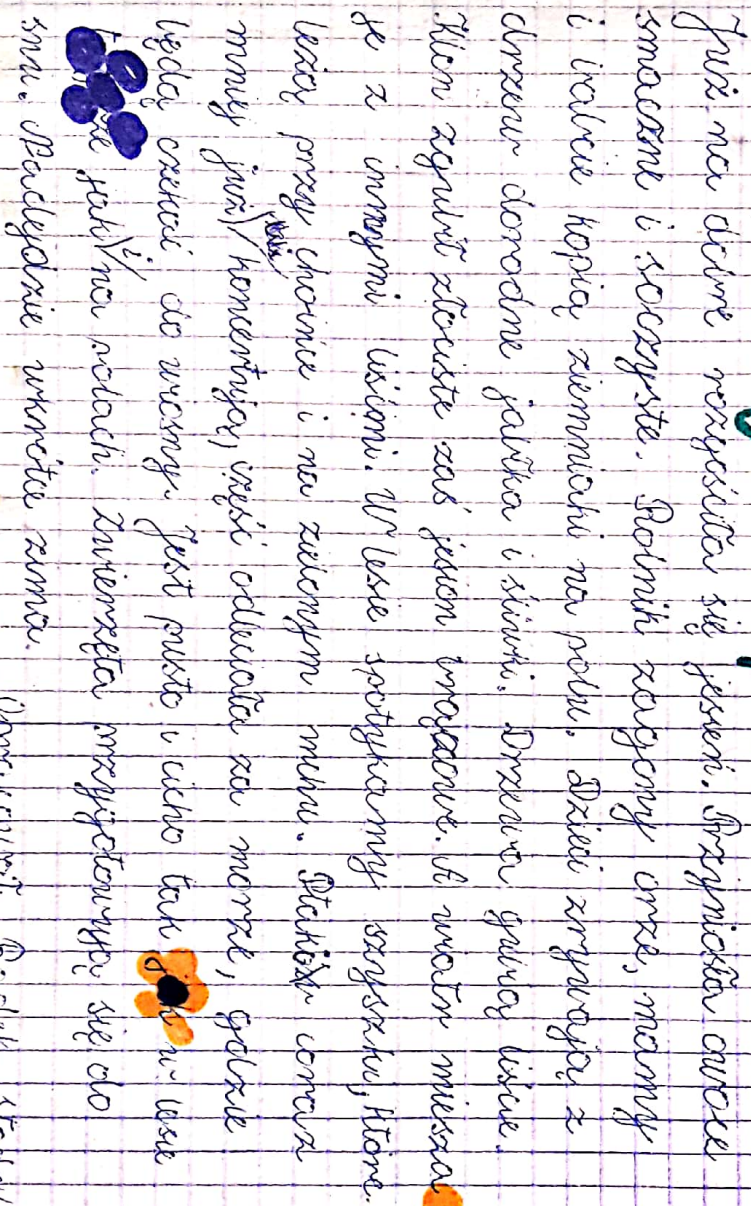 Już na dobre rozgościła się jesień. Przyniosła owoce
smaczne i soczyste. Rolnik zagony orze, mamy
i babcie kopią ziemniaki na polu. Dzieci zrywają z
drzew dorodne jabłka i śliwki. Drzewa gubią liście.
Klon zgubił złociste zaś jesion brązowe. A wiatr miesza
je z innymi liśćmi. W lesie spotykamy szyszki, które
leżą przy choince i na zielonym mchu. Ptaków coraz
mniej już koncertuje, część odleciała za morze, gdzie
będą czekać do wiosny. Jest pusto i cicho tak w lesie
jak i na polach. Zwierzęta przygotowują się do
snu. Nadejdzie wkrótce zima.